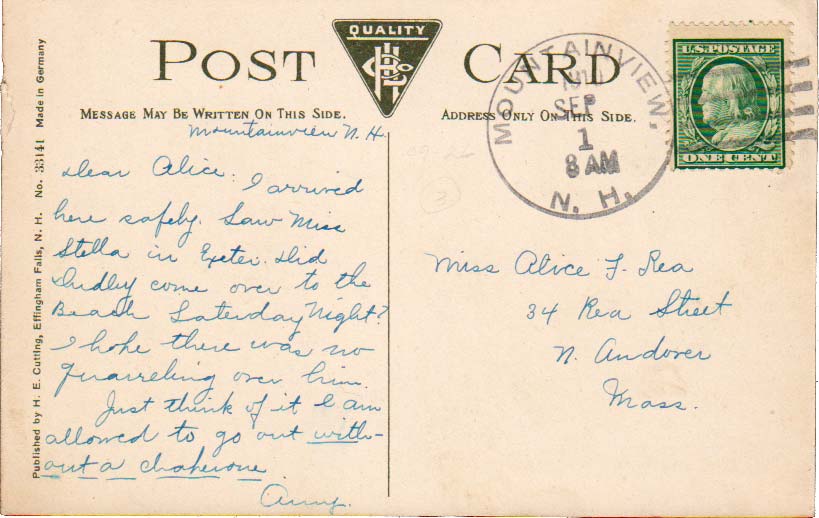 POST CARD
QUALITY
MESSAGE MAY BE WRITTEN ON THIS SIDE.
ADDRESS ONLY ON THIS SIDE.
Mountainview N. H.
Dear Alice.
I arrived
here safely. Saw Miss
Stella in Exeter. Did
Dudley come over to the
Beach Saterday Night?
I hope there was no
quarreling over him.
Just think of it I am
allowed to go out with-
out a chaperone.
MOUNTAINVIEW,
SEP
1
8 AM
N. H.
U.S. POSTAGE
ONE CENT
Miss Alice F. Rea
34 Rea Street
N. Andover
Mass.
Published by H. E. Cutting, Effingham Falls, N. H. No. 33141 Made in Germany